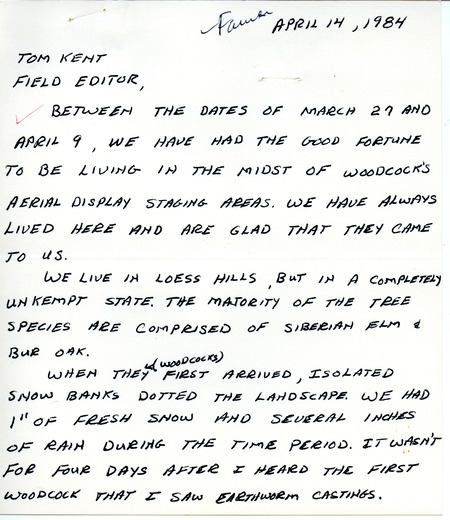 Farmer APRIL 14, 1984
TOM KENT
FIELD EDITOR,
BETWEEN THE DATES OF MARCH 27 AND
APRIL 9, WE HAVE HAD THE GOOD FORTUNE
TO BE LIVING IN THE MIDST OF WOODCOCK'S
AERIAL DISPLAY STAGING AREAS. WE HAVE ALWAYS
LIVED HERE AND ARE GLAD THAT THEY CAME
TO US.
WE LIVE IN LOESS HILLS, BUT IN A COMPLETELY
UNKEMPT STATE. THE MAJORITY OF THE TREE
SPECIES ARE COMPRISED OF SIBERIAN ELM &
BUR OAK.
WHEN THEY (WOODCOCKS) FIRST ARRIVED, ISOLATED
SNOW BANKS DOTTED THE LANDSCAPE. WE HAD
1" OF FRESH SNOW AND SEVERAL INCHES
OF RAIN DURING THE TIME PERIOD. IT WASN'T
FOR FOUR DAYS AFTER I HEARD THE FIRST
WOODCOCK THAT I SAW EARTHWORM CASTINGS.